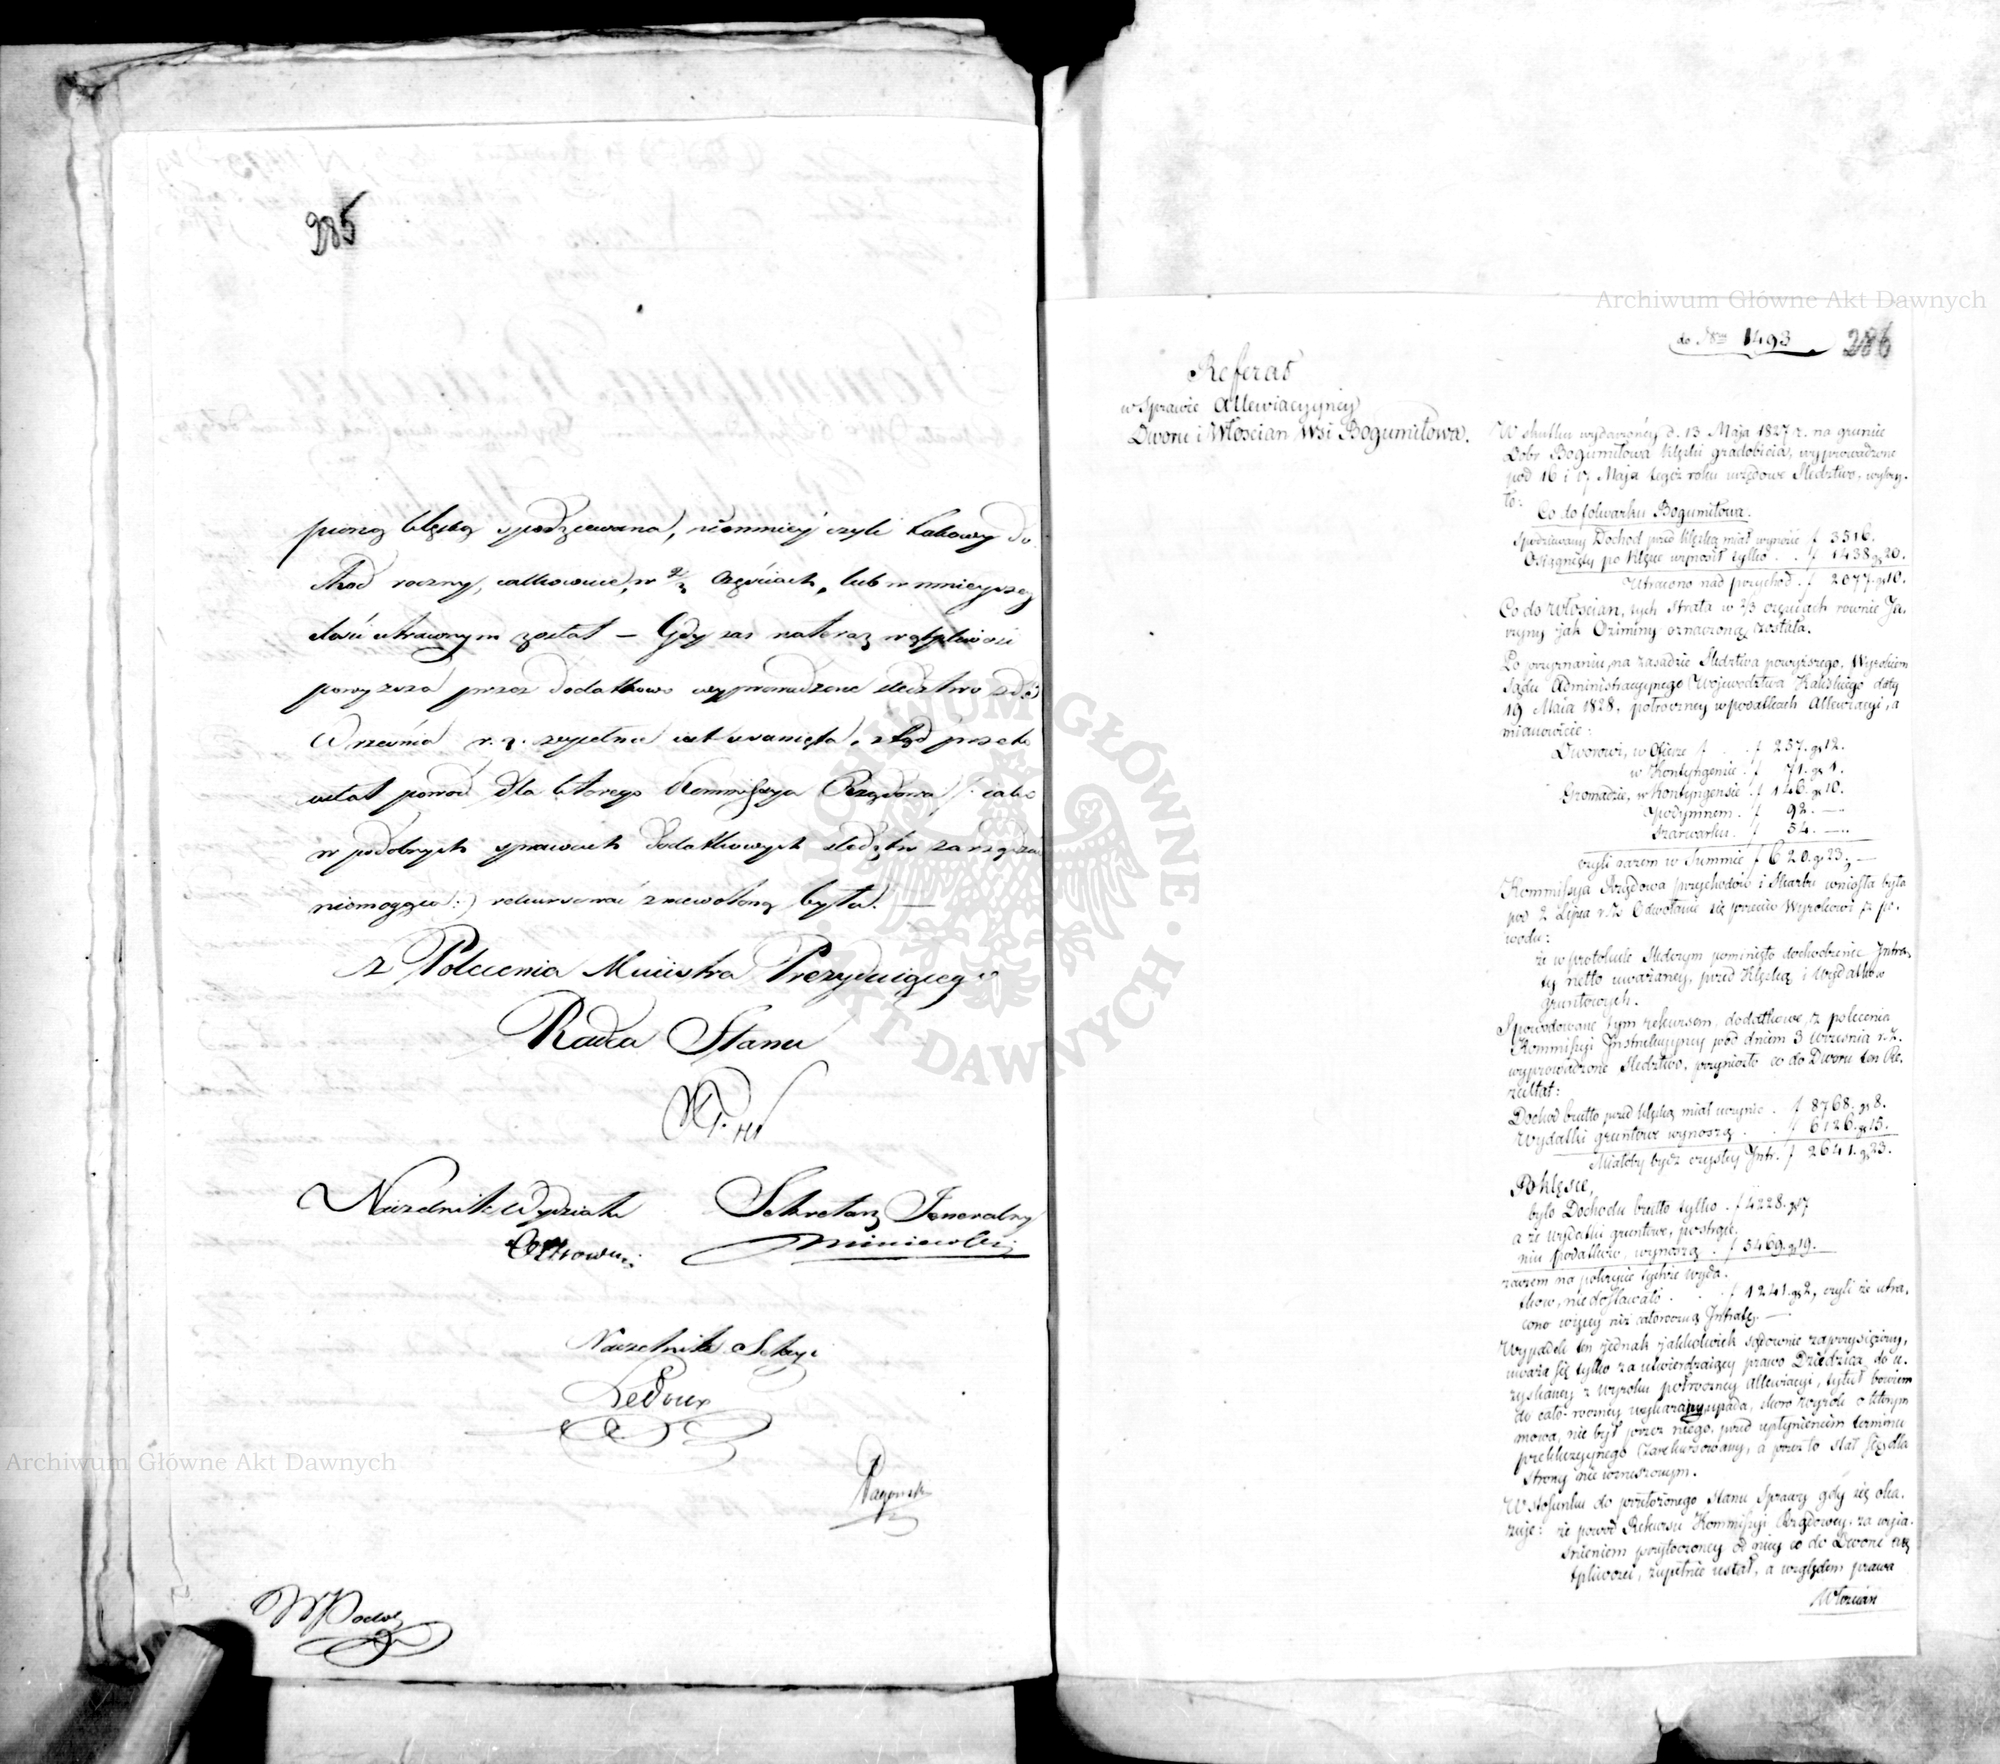 285
pioną klęską spodziewana, niemniéj czyli takowy do
chód roczny, całkowicie, w 2/3 częściach, lub w mnieyszey
ilości utraconym został — Gdy zaś nateraz wątpliwość
powyższa przez dodatkowo wyprowadzone śledztwo z dó 3
Września r. z. zupełnie iest usunięta, ztąd przeto
ustał powód dla którego Kommissya Rządowa /: iako
w podobnych sprawach dodatkowych śledztw zarządzać
niemogąca :/ rekursować zniewoloną była. —
z Polecenia Ministra Prezyduiącego
Radca Stanu
Naczelnik Wydziału
Sekretarz Jeneralny
Naczelnik Sekcyi
Ledoux
Archiwum Główne Akt Dawnych
ARCHIWUM GŁÓWNE AKT DAWNYCH
Archiwum Główne Akt Dawnych
do Nru 1493
286
Referat
w Sprawie Allewiacyyney
Dworu i Włościan Wsi Bogumiłowa.
W skutku wydarzoney d. 13 Maja 1827 r. na gruncie
Dobr Bogumiłowa klęski gradobicia, wyprowadzone
pod 16 i 17 Maja tegoż roku urzędowe Śledztwo, wykry-
ło:
Co do folwarku Bogumiłowa.
Spodziewany Dochod przed klęską miał wynosić f 3516.
Osiągnięty po klęsce wynosił tylko . . f 1438 gr 20.
Utracono nad przychod . f 2077. gr 10.
Co do Włościan, tych strata w 2/3 częściach równie Ja-
rzyny jak Oziminy oznaczoną została.
Po przyznaniu, na zasadzie Śledztwa powyższego, Wyrokiem
Sądu Administracyynego Województwa Kaliskiego daty
19 Maia 1828, półroczney w podatkach Allewiacyi, a
mianowicie:
Dworowi, w Ofierze f . . f 257. gr 12.
w Kontyngensie . f 71. gr 1.
Gromadzie, w Kontyngensie . f 146. gr 10.
Podymnem . f 92. —
Szarwarku . f 54. —
czyli razem w Summie f 620. gr 23. —
Kommissya Rządowa przychodów i Skarbu wniosła była
pod 2 Lipca r. z. Odwołanie się przeciw Wyrokowi z po-
wodu:
że w protokule Śledczym pominięto dochodzenie Intra-
ty netto uważaney, przed klęską i Wydatków
gruntowych.
Spowodowane tym rekursem, dodatkowe, z polecenia
Kommissyi Instrukcyyney pod dniem 3 Września r. z.
wyprowadzone Śledztwo, przyniosło co do Dworu ten Re-
zultat:
Dochod brutto przed klęską miał uczynić . f 8768. gr 8.
Wydatki gruntowe wynoszą . . f 6126. gr 15.
Miałoby bydź czystey Intr. f 2641. gr 23.
Po klęsce,
było Dochodu brutto tylko . f 4228. gr 17
a że wydatki gruntowe, po strące-
niu podatków, wynoszą . f 5469. gr 19.
zaczem na pokrycie tychże wyda-
tków, niedostawało . . . f 1241. gr 2, czyli że utra-
cono więcey niż całoroczną Intratę. —
Wypadek ten jednak jakkolwiek sądownie zaprzysiężony,
uważa się tylko za utwierdzaiący prawo Dziedzica do u-
zyskaney z wyroku półroczney allewiacyi, tytuł bowiem
do cało-roczney wykazany upada, skoro wyrok o którym
mowa, nie był przez niego, przed upłynieniem terminu
prekluzyynego zarekursowany, a przez to stał się dla
strony nie wzruszonym.
W stosunku do przełożonego Stanu Sprawy gdy się oka-
zuje: że powód Rekursu Kommissyi Rządowey, za wyja-
śnieniem przytoczoney od niey co do Dworu wąt-
pliwości, zupełnie ustał, a względem prawa
Włościan